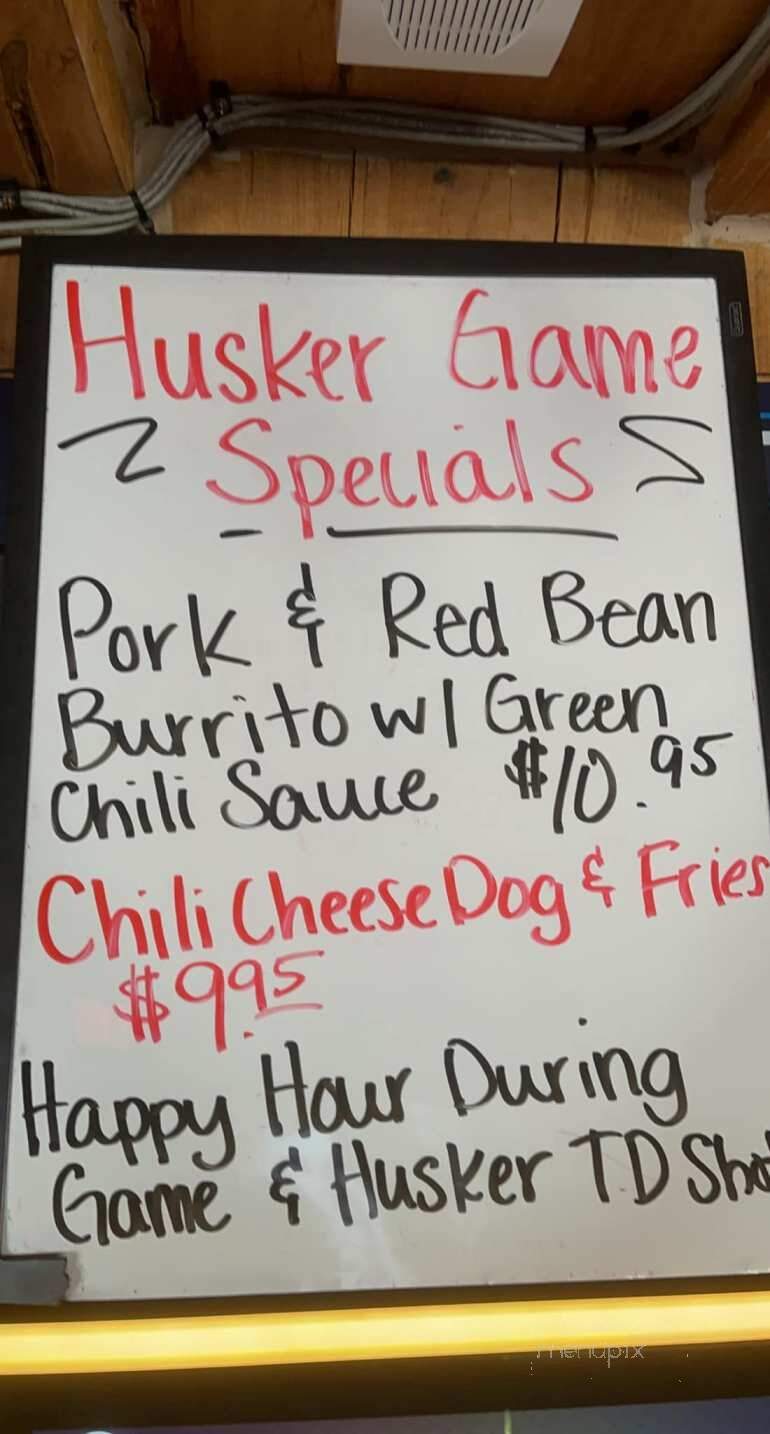 Husker Game
Specials
Pork & Red Bean
Burrito w/ Green
Chili Sauce $10.95
Chili Cheese Dog & Fries
$9.95
Happy Hour During
Game & Husker TD
menupix